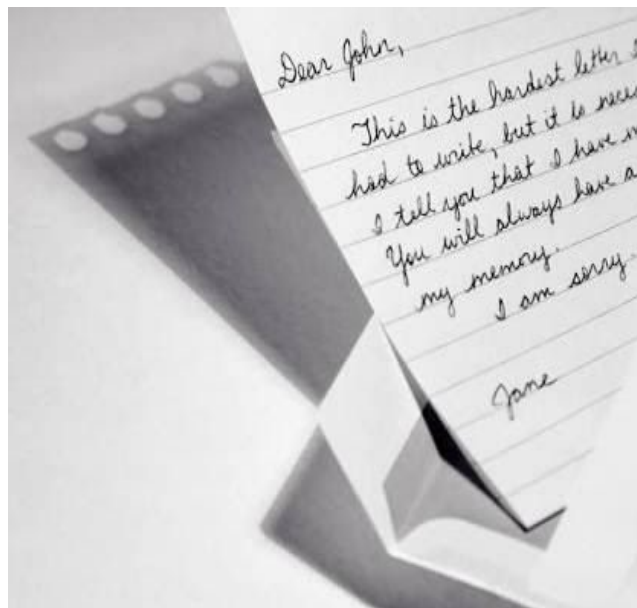 Dear John,
This is the hardest letter
had to write, but it is
I tell you that I have
You will always have a
my memory.
I am sorry.
Jane